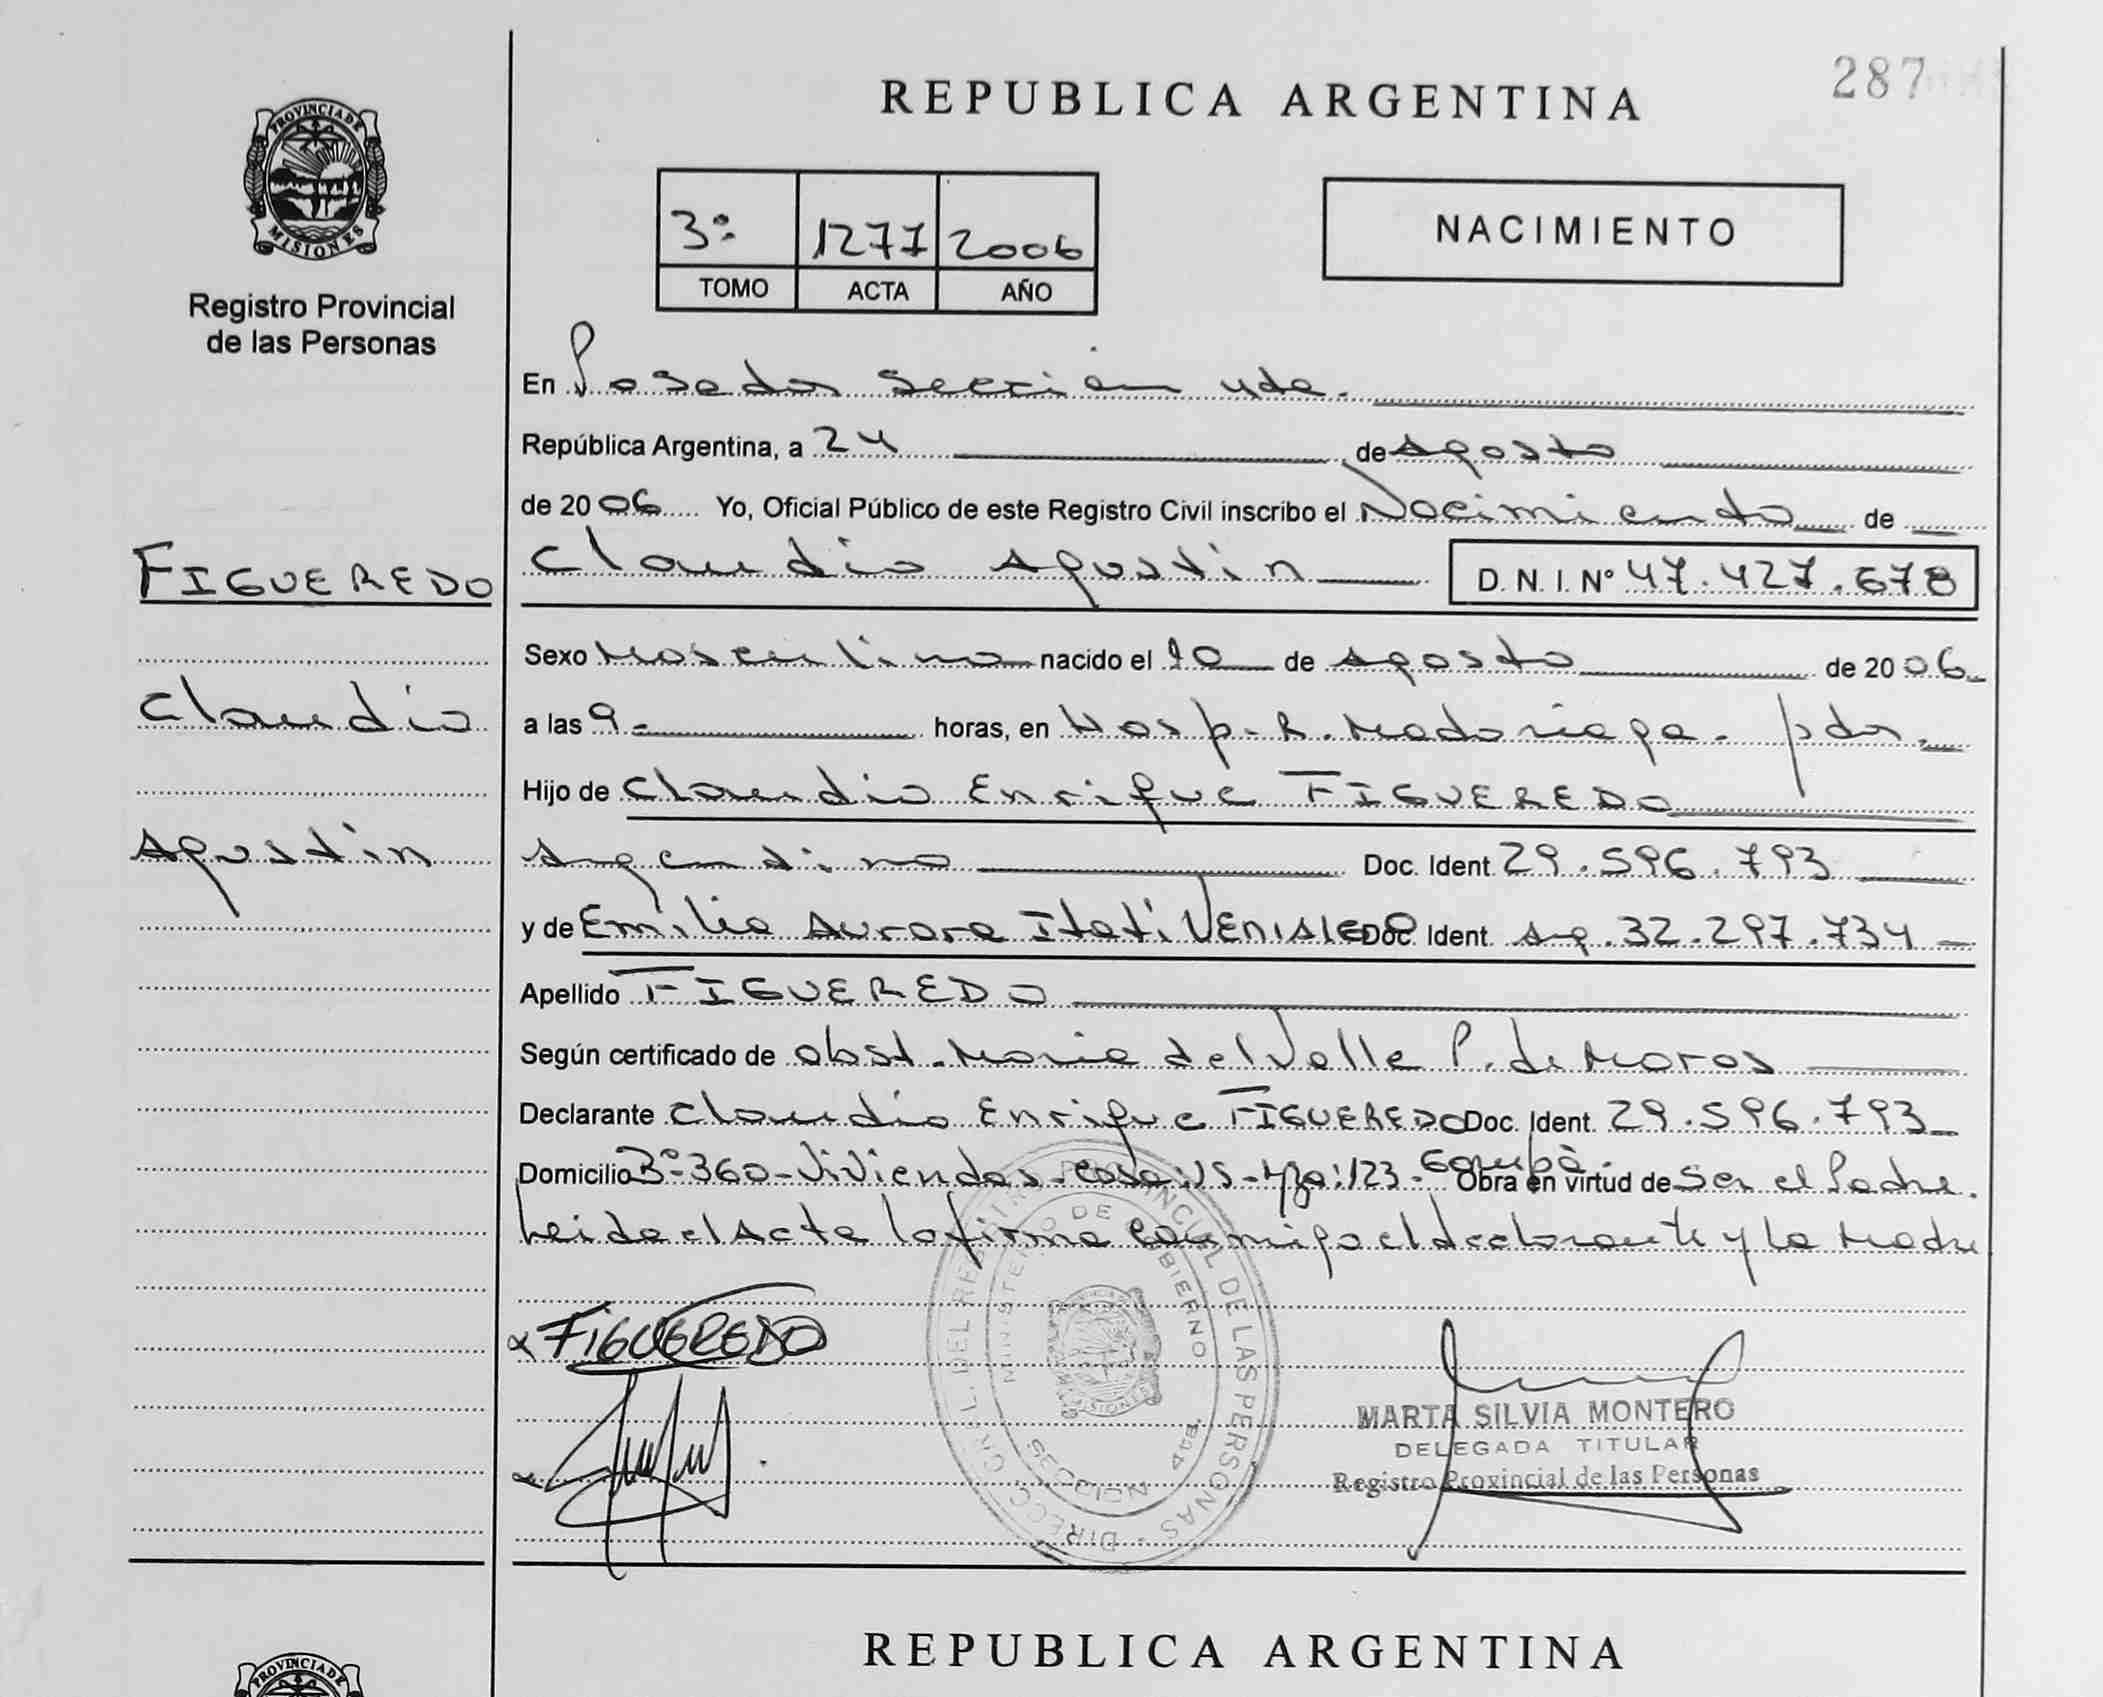 287
REPUBLICA ARGENTINA
PROVINCIA DE
MISIONES
Registro Provincial
de las Personas
3º 1277 2006
TOMO ACTA AÑO
NACIMIENTO
En Posadas Sección 4ta.
República Argentina, a 24 de Agosto
de 2006 Yo, Oficial Público de este Registro Civil inscribo el Nacimiento de
FIGUEREDO
Claudio Agustin D. N. I. Nº 47.427.678
Sexo Masculino nacido el 10 de Agosto de 2006
Claudio
a las 9 horas, en Hosp. R. Madariaga. pdas.
Hijo de Claudio Enrique FIGUEREDO
Agustin
Argentino Doc. Ident. 29.596.793
y de Emilia Aurora Itati Doc. Ident. Arg. 32.297.734
Apellido FIGUEREDO
Según certificado de obst. Maria del Valle P. de Moros
Declarante Claudio Enrique FIGUEREDO Doc. Ident. 29.596.793
Domicilio 3º-360-Viviendas-casa:15-Mza:123-Garupá Obra en virtud de Ser el Padre.
Leida el Acta la firma conmigo el declarante y la Madre
x FIGUEREDO
DIRECC. GRAL. DEL REGISTRO PROVINCIAL DE LAS PERSONAS
MINISTERIO DE GOBIERNO
SECCION 4ta
MISIONES
MARTA SILVIA MONTERO
DELEGADA TITULAR
Registro Provincial de las Personas
REPUBLICA ARGENTINA
PROVINCIA DE